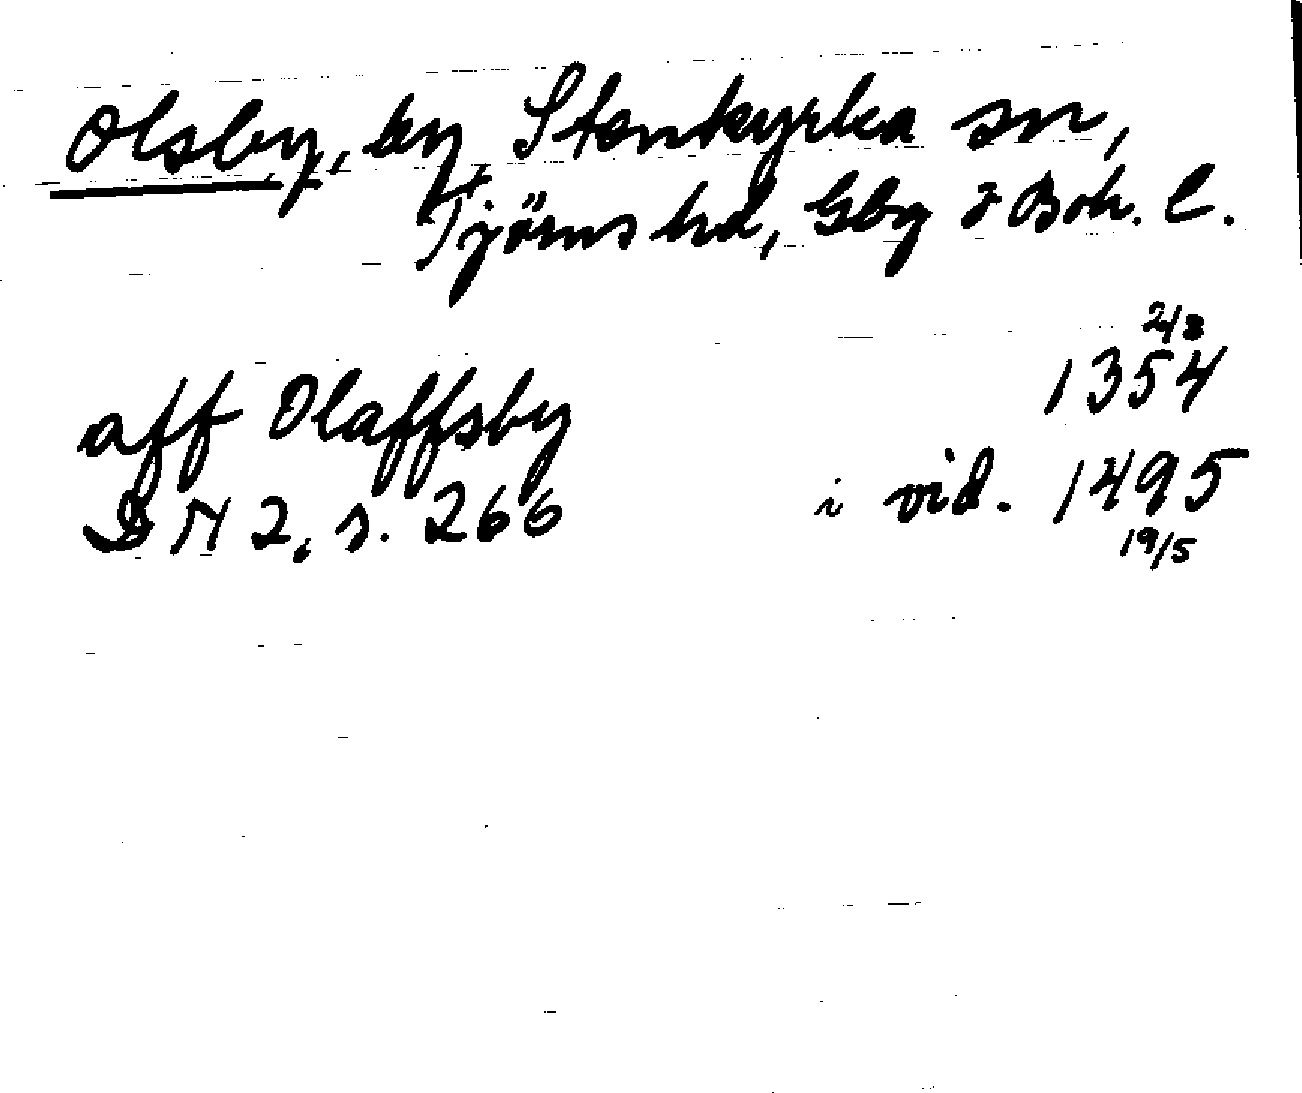 Olsby, by, Stenkyrka sn,
Tjörns hd, Gbg o Boh. l.
2/3
aff Olaffsby 1354
DN 2, s. 266 i vid. 1495
19/5